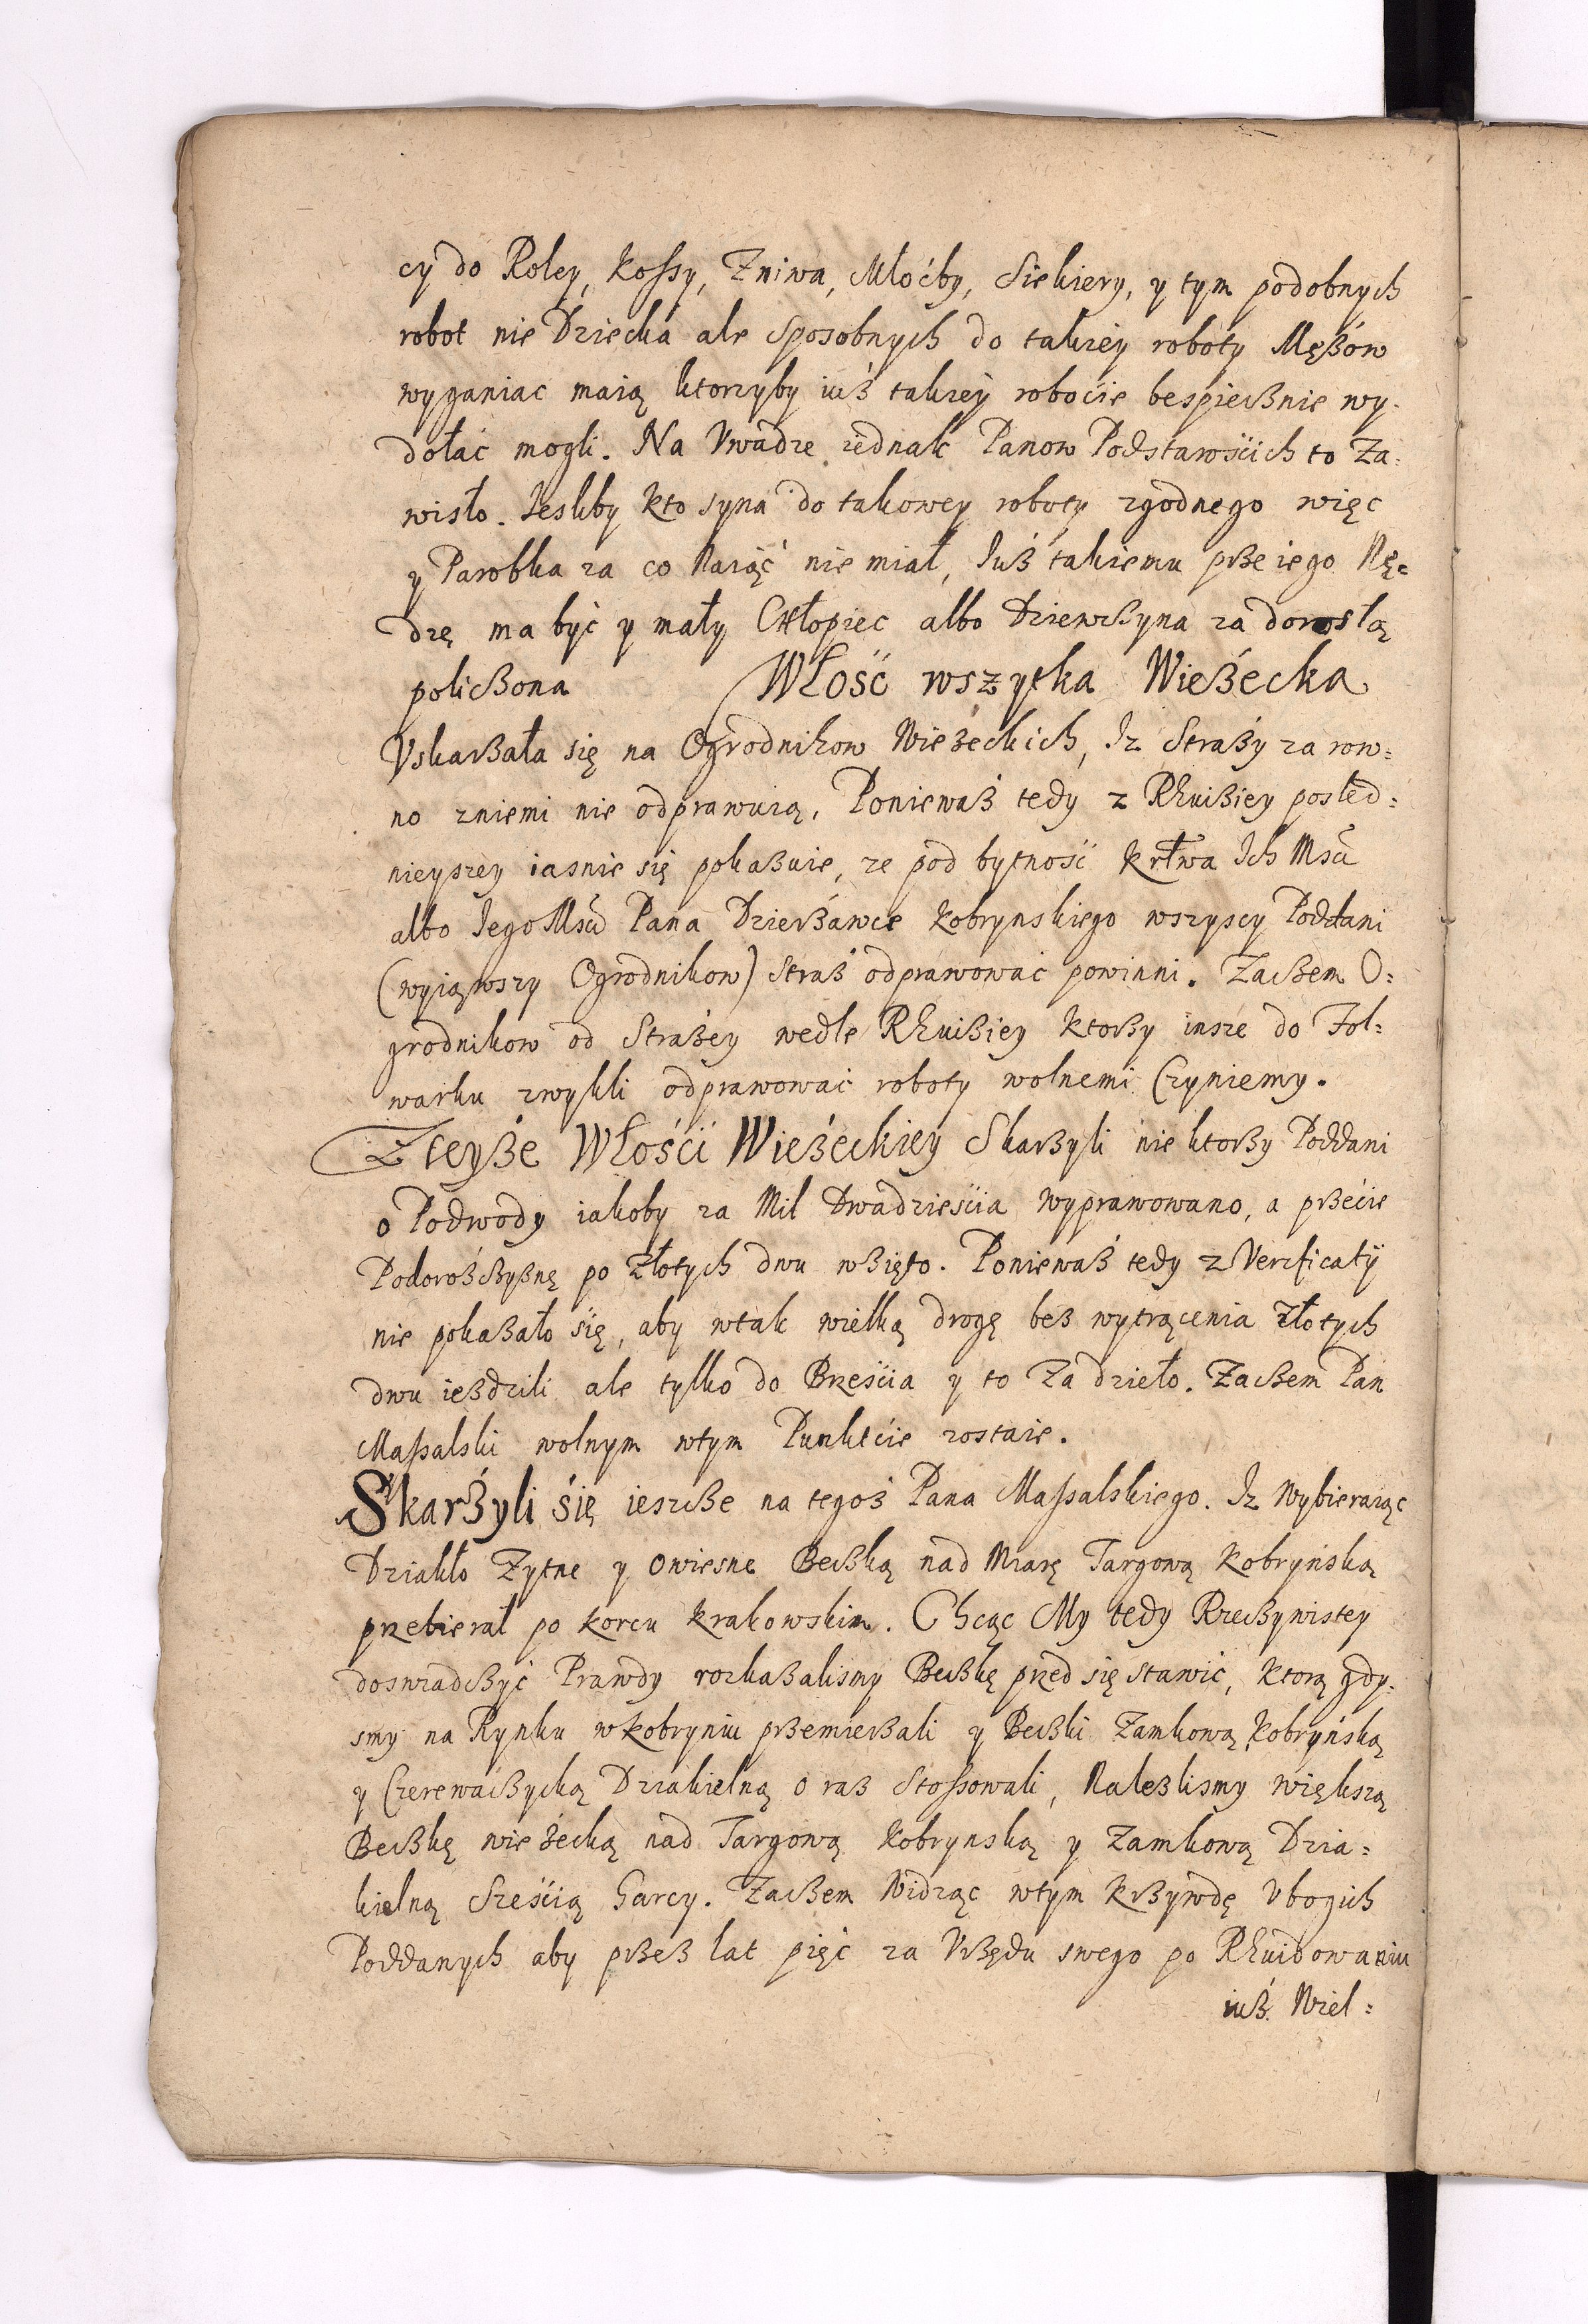 cy do Roley, Kossy, Zniwa, Młoćby, Siekiery, y tym podobnych
robot nie Dziecka ale sposobnych do takiey roboty Mężow
wyganiac maią ktorzyby iuż takiey robocie bespiecznie wy-
dołać mogli. Na Vwadze iednak Panow Podstarościch to Za-
wisło. Iesliby kto syna do takowey roboty zgodnego więc
y Parobka za co Naiąć nie miał, Iuż takiemu prze iego Nę-
dzę ma być y mały Chłopiec albo Dziewczyna za dorosłą
policzona Włość wszytka Wieżecka
Vskarżała się na Ogrodnikow Wieżeckich, Iz Straży za row-
no zniemi nie odprawuią, Poniewaß tedy z Rhuiziey posled-
nieyszey iasnie się pokazuie, ze pod bytność Krłwa Ich Mści
albo Iego Mści Pana Dzierżawce Kobrynskiego wszyscy Poddani
(wyiąwszy Ogrodnikow) straż odprawować powinni. Zaczem O-
grodnikow od Strażey wedle Rhuiziey ktorzy insze do Fol-
warku zwykli odprawować roboty wolnemi Czyniemy.
Z teyże Włości Wieżeckiey Skarżyli niektorzy Poddani
o Podwody iakoby za Mil Dwadzieścia wyprawowano, a przećie
Podorożczyznę po Złotych dwu wzięto. Ponieważ tedy z Verificatÿ
nie pokazało się, aby wtak wielką drogę bez wytrącenia Złotych
dwu ieździli ale tylko do Brześcia y to Za dzieło. Zaczem Pan
Massalski wolnym wtym Punktcie zostaie.
Skarżyli się ieszcze na tegoż Pana Massalskiego. Iz Wybieraiąc
Dziakło Zytne y owiesne Beczką nad Miarę Targową Kobryńską
przebierał po Korcu Krakowskim. Chcąc My tedy Rzeczywistey
doswiadczyć Prawdy rozkazalismy Beczkę przed się stawić, Ktorą gdy-
smy na Rynku w Kobryniu przemierzali y Beczki Zamkową Kobryńską
y Czerewaczycką Dziakielną oraz Stossowali, Nalezlismy większą
Beczkę wieżecką nad Targową Kobrynską y Zamkową Dzia-
kielną Sześcią Garcy. Zaczem Widząc wtym Krzywdę Vbogich
Poddanych aby przez lat pięć za Vrzędu swego po Rhuidowaniu
iuż Wiel-